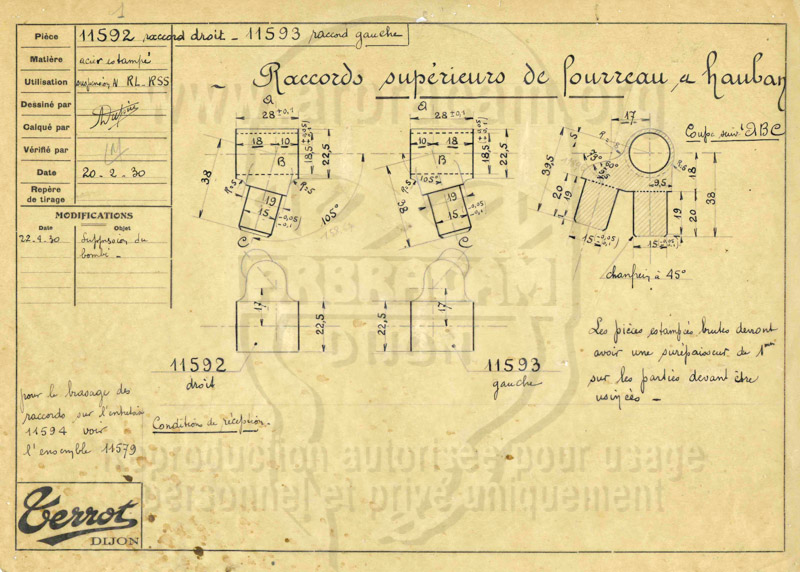 1
Pièce 11592 raccord droit - 11593 raccord gauche
Matière acier estampé
Utilisation suspension N RL-RSS
Dessiné par
Calqué par
Vérifié par
Date 20-2-30
Repère
de tirage
MODIFICATIONS
Date Objet
22-4-30 Suppression du
bombé -
- Raccords supérieurs de fourreau, a hauban
Coupe suivt ABC
A
28 ±0,1
18 10
B
18,5 ±0,05
22,5
38
R=5
R=5
19
15 -0,05 -0,1
105°
C
A
28 ±0,1
10 18
B
18,5 ±0,05 ±0,1
22,5
105°
R=5
38
19
15 -0,05 -0,1
C
17
5
33,5
R=5
9,5
18
38
20 19
19 20
15 -0,05 -0,1
15 -0,05 -0,1
chanfrein à 45°
17
22,5
22,5
17
11592
droit
11593
gauche
Les pièces estampées brutes devront
avoir une surépaisseur de 1mm
sur les parties devant être
usinées -
pour le brasage des
raccords sur l'entretoise
11594 voir
l'ensemble 11579
Condition de réception -
www.arbracam.com
ARBRACAM
Dijon
Reproduction autorisée pour usage
personnel et privé uniquement
Terrot
DIJON